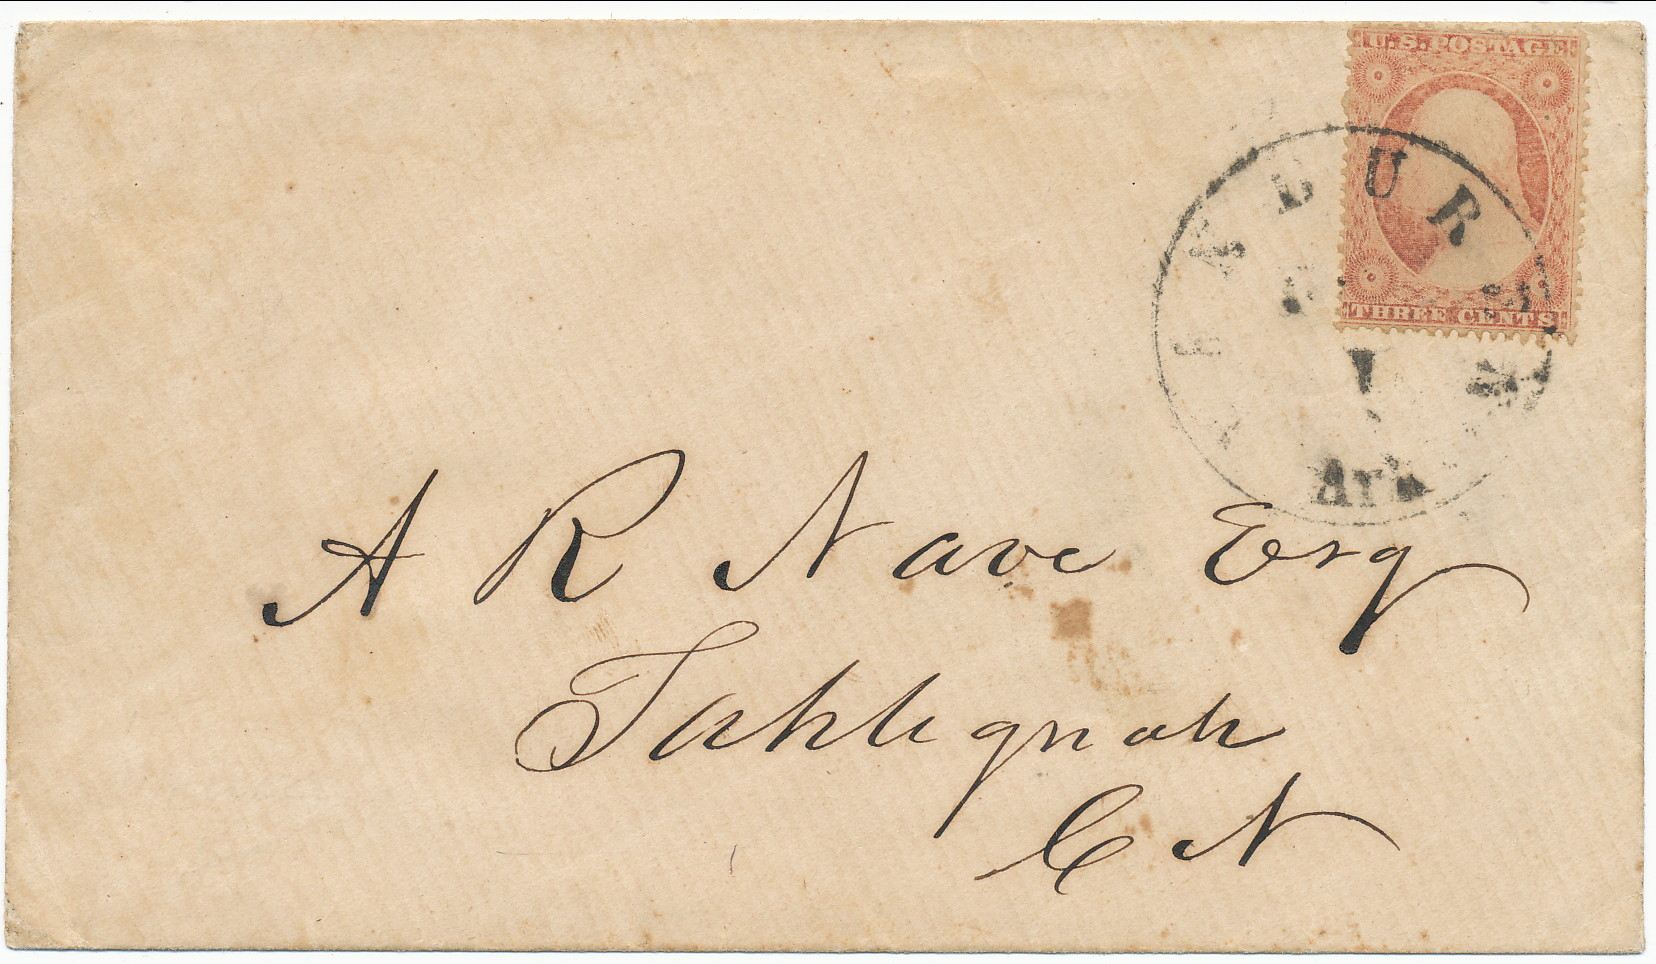 U.S. POSTAGE
THREE CENTS
Ark
A R Nave Esq
Tahlequah
C N